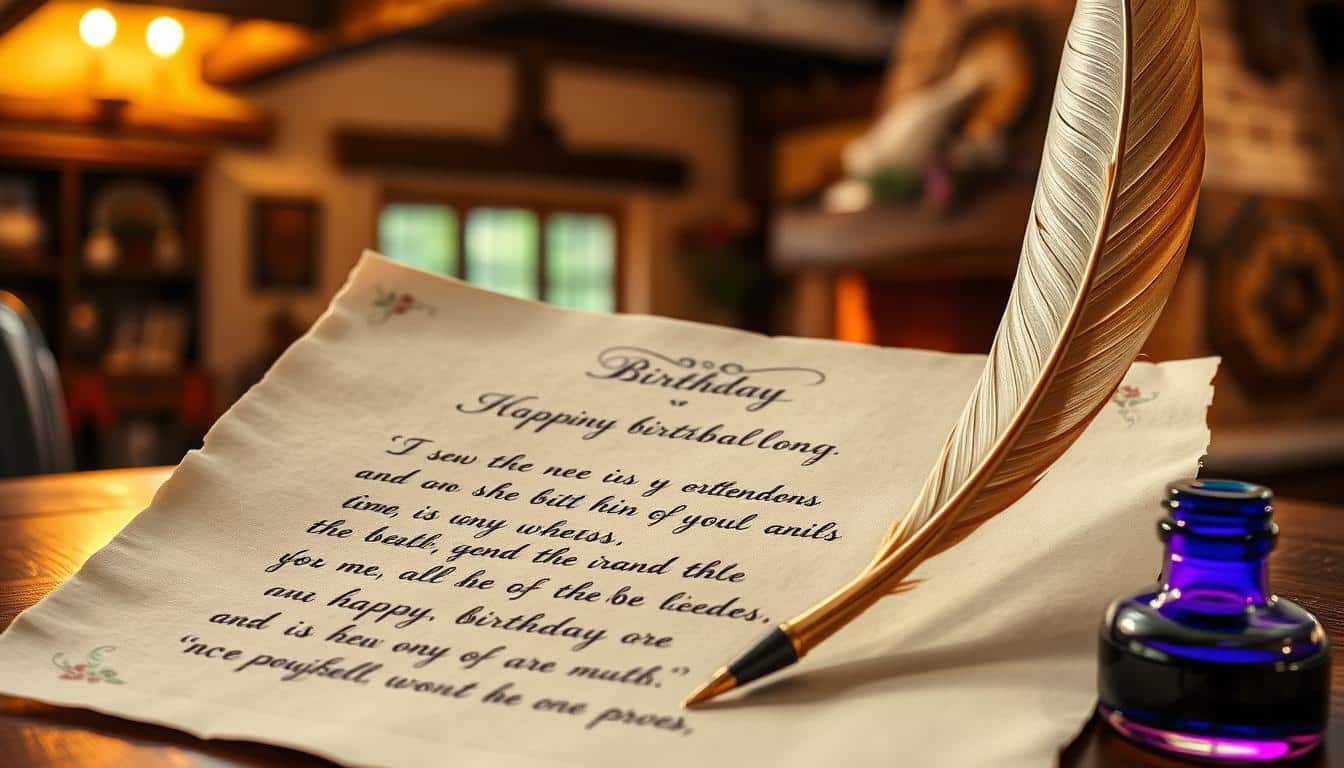 Birthday
Happiny birtbballong.
"I sew the nee is y ortlendons
and aro she bitt hin of youl anils
time, is wny whetss.
the beatl, gend the irand thle
yor me, all he of the be liedes,
ani happy. birthday ore
and is hew ony of are muth."
"nce poujkell wont he one proes,